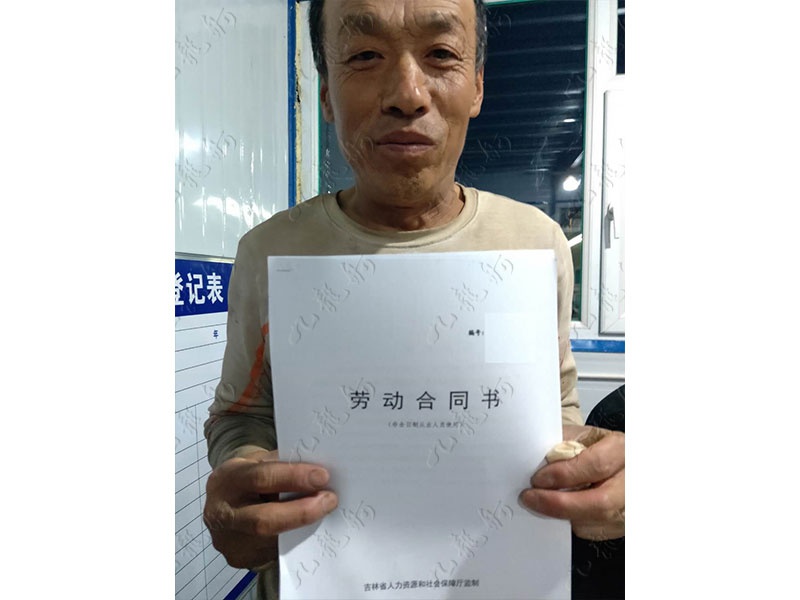 登记表
年
编号:
劳动合同书
(非全日制从业人员使用)
吉林省人力资源和社会保障厅监制